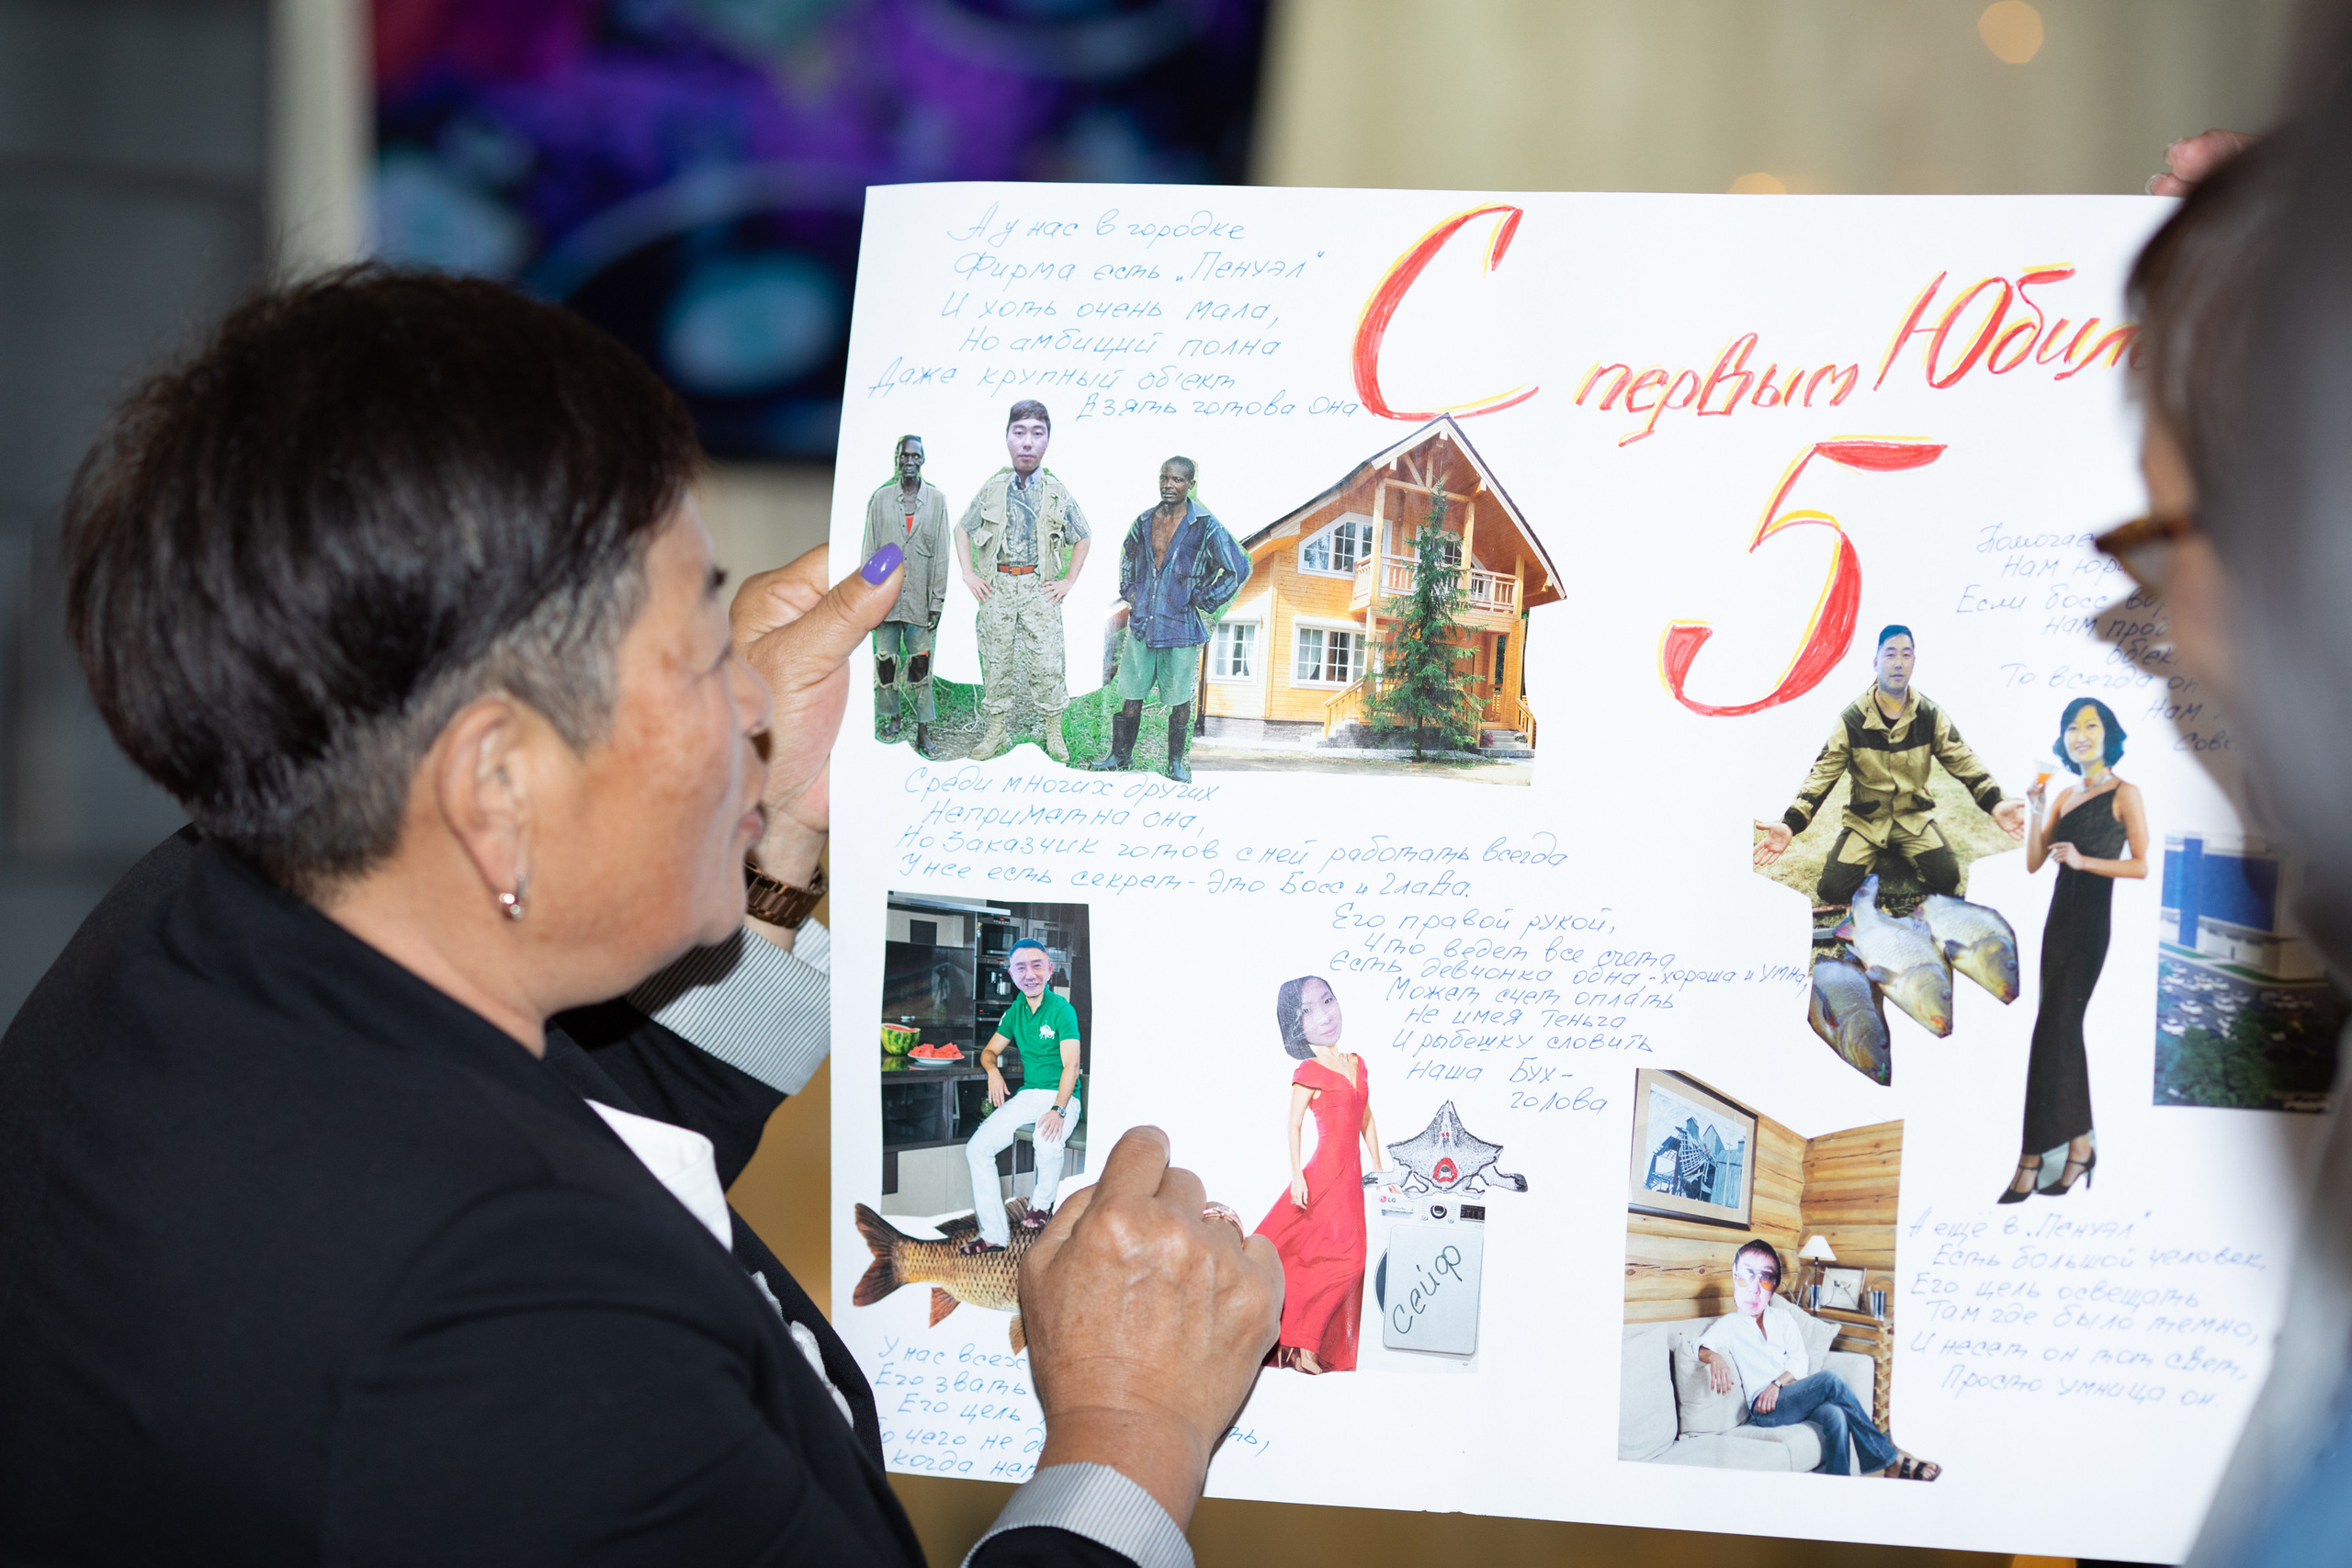 А у нас в городке
Фирма есть „Пенуэл"
И хоть очень мала,
Но амбиций полна
Даже крупный объект
Взять готова она
С первым Юбиле
5
Помогае
Нам юри
Если босс
Нам
объек
То всегда он
Нам
Сове
Среди многих других
Неприметна она,
Но Заказчик готов с ней работать всегда
У нее есть секрет - это Босс и Глава.
Его правой рукой,
Что ведет все счета
Есть девчонка одна, - хороша и умна,
Может счет оплать
Не имея теньга
И рыбешку словить
Наша Бух-
голова
LG
Сейф
А ещё в „Пенуэл"
Есть большой человек,
Его цель освещать
Там где было темно,
И несет он тот свет,
Просто умница он.
У нас всех
Его звать
Его цель
чего не
ть,
когда